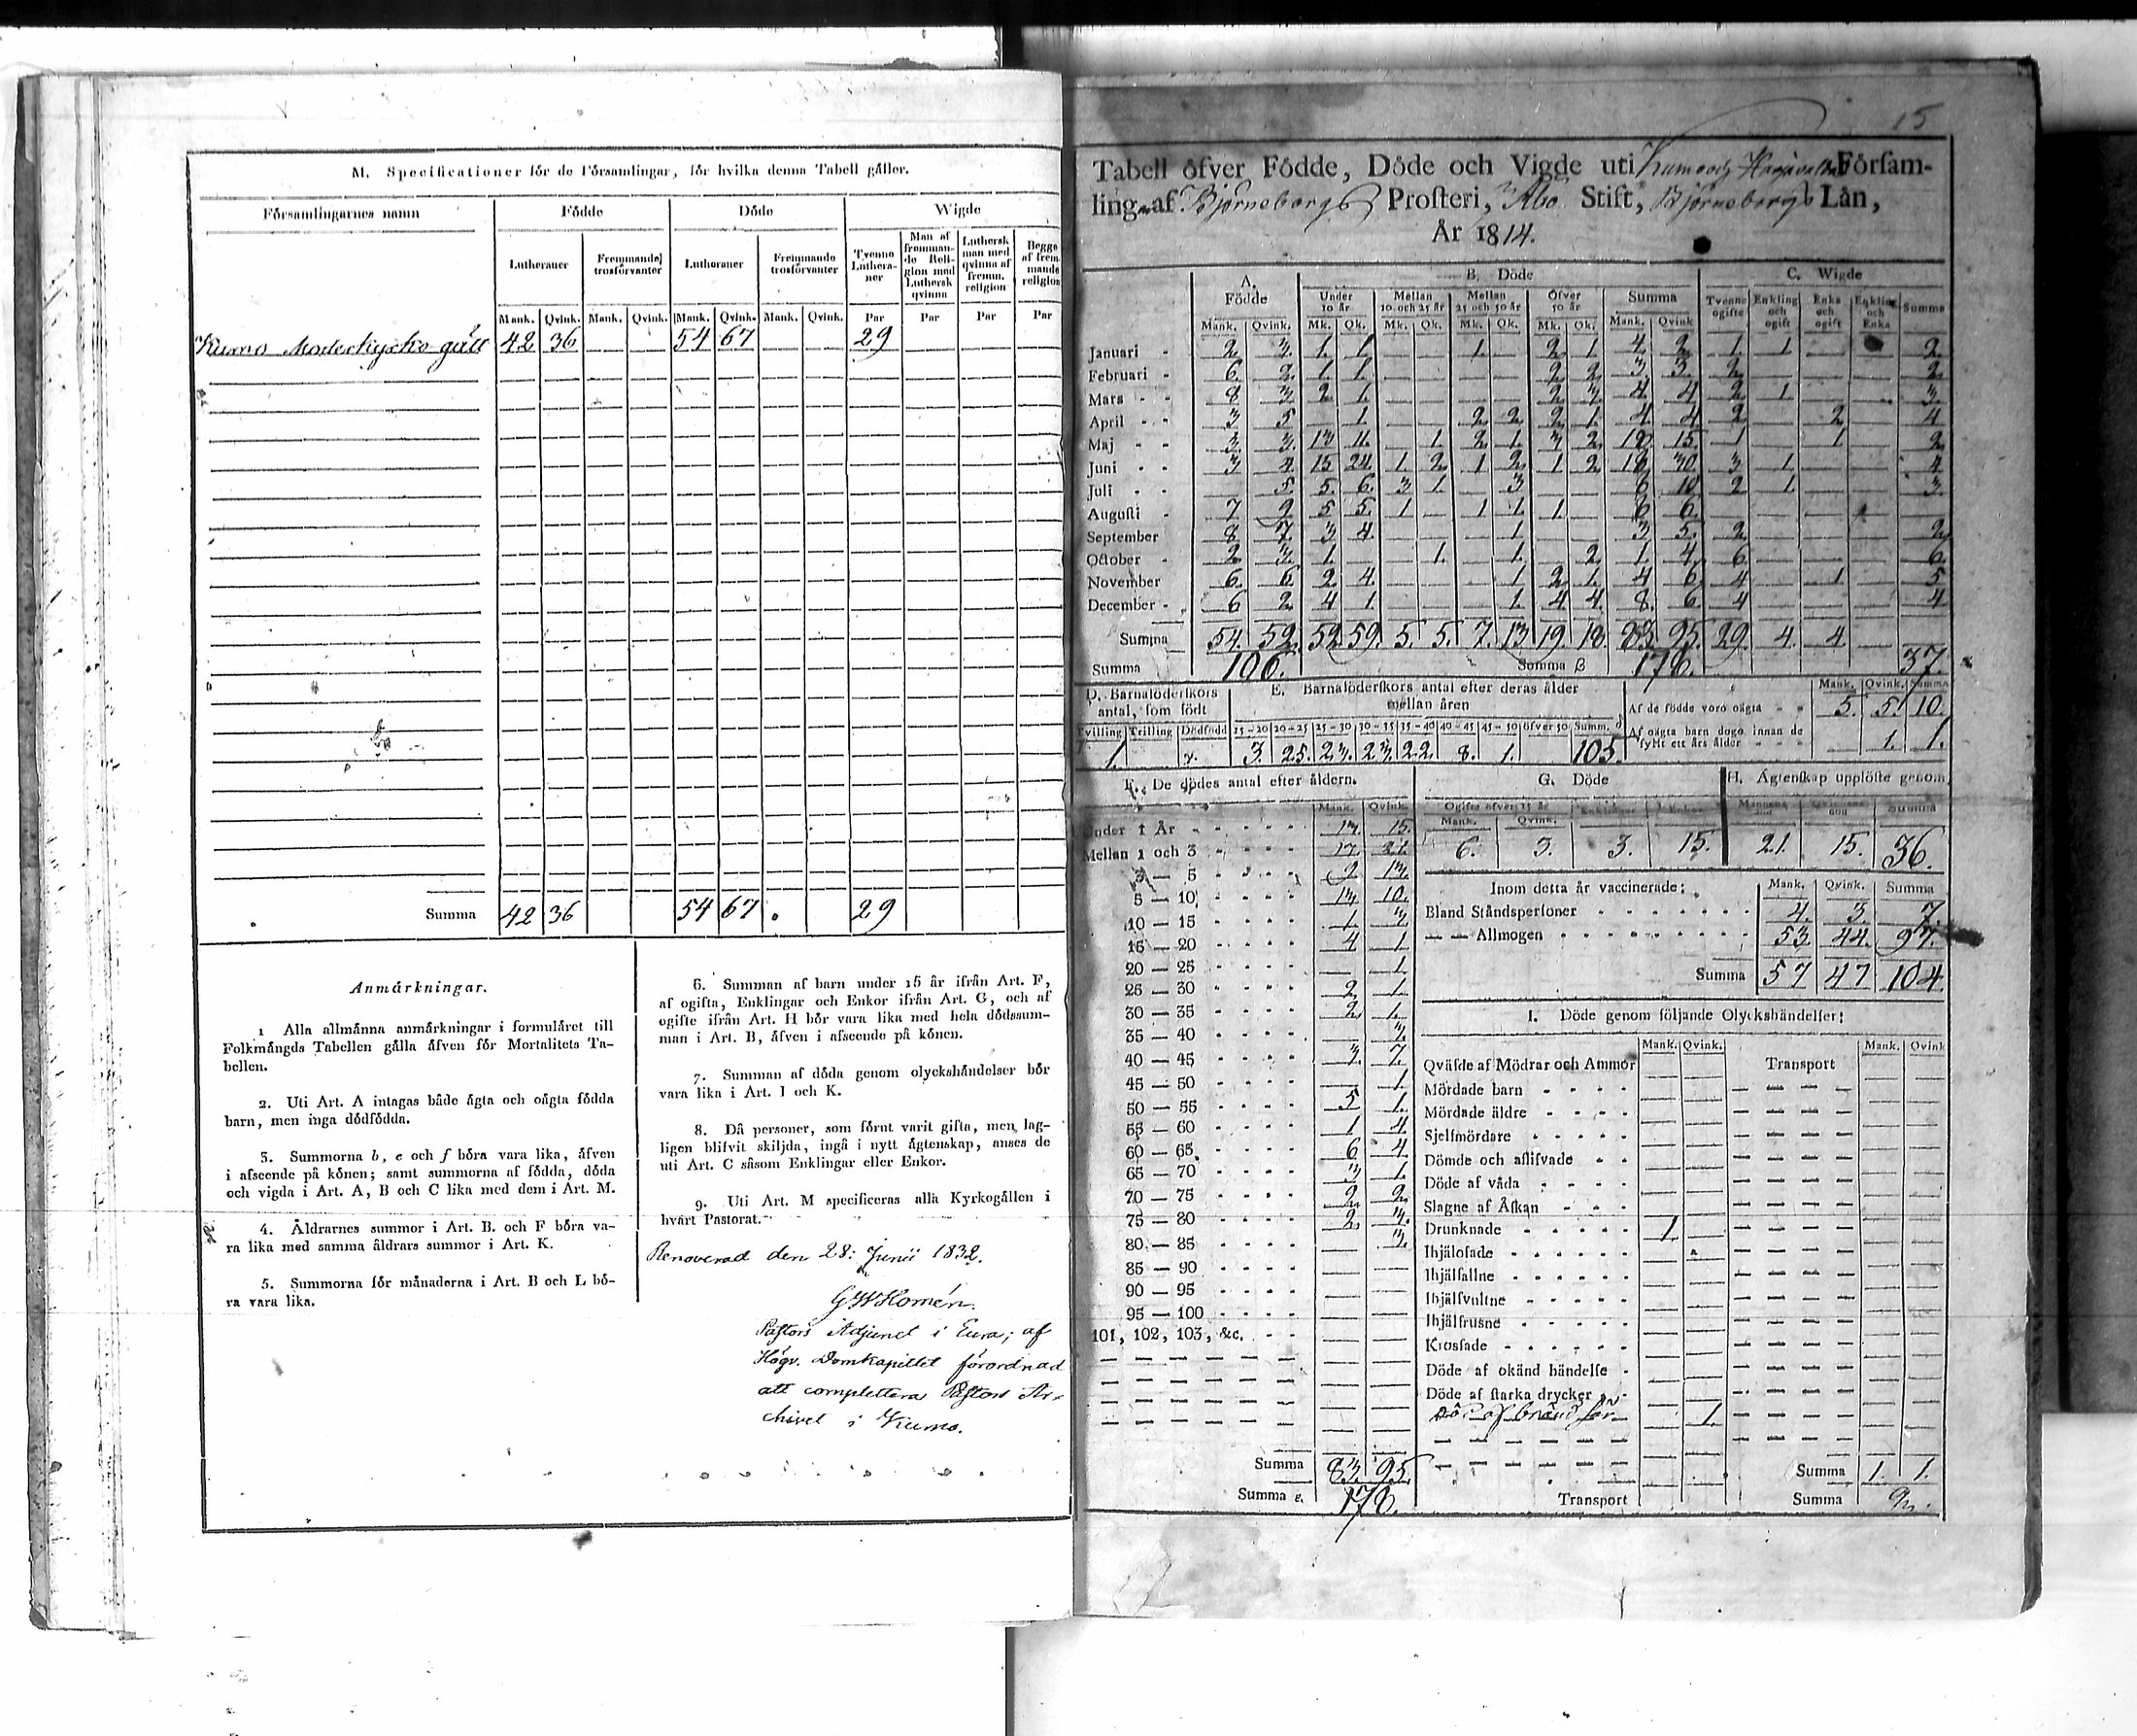 M. Specificationer för de Församlingar, för hvilka denna Tabell gäller.
Församlingarnes namn Födde Döde Wigde
Lutheraner Fremmande trosförvanter Lutheraner Fremmande trosförvanter Tvenne Lutheraner Man af fremmande Religion med Luthersk qvinna Luthersk man med qvinna af fremm. religion Begge af fremmande religion
Mank. Qvink. Mank. Qvink. Mank. Qvink. Mank. Qvink. Par Par Par Par
Kumo Moderkyrko gäll 42 36 54 67 29
Summa 42 36 54 67 29
Anmärkningar.
1 Alla allmänna anmärkningar i formuläret till
Folkmängds Tabellen gälla äfven för Mortalitets Ta-
bellen.
2. Uti Art. A intagas både ägta och oägta födda
barn, men inga dödfödda.
3. Summorna b, e och f böra vara lika, äfven
i afseende på könen; samt summorna af födda, döda
och vigda i Art. A, B och C lika med dem i Art. M.
4. Åldrarnes summor i Art. B. och F böra va-
ra lika med samma åldrars summor i Art. K.
5. Summorna för månaderna i Art. B och L bö-
ra vara lika.
6. Summan af barn under 15 år ifrån Art. F,
af ogifta, Enklingar och Enkor ifrån Art. G, och af
ogifte ifrån Art. H bör vara lika med hela dödssum-
man i Art. B, äfven i afseende på könen.
7. Summan af döda genom olyckshändelser bör
vara lika i Art. I och K.
8. Då personer, som förut varit gifta, men lag-
ligen blifvit skiljda, ingå i nytt ägtenskap, anses de
uti Art. C såsom Enklingar eller Enkor.
9. Uti Art. M specificeras alla Kyrkogällen i
hvart Pastorat.
Renoverad den 28: Junii 1832.
G W Homén.
Pastors Adjunct i Eura, af
Högv. Domkapitlet förordnad
att complettera Pastors Ar-
chivet i Kumo.
15
Tabell öfver Födde, Döde och Vigde uti Kumo och Harjavalta Försam-
ling af Björneborgs Prosteri, Åbo Stift, Björneborgs Län,
År 1814.
A. Födde B. Döde C. Wigde
Under 10 år Mellan 10 och 25 år Mellan 25 och 50 år Öfver 50 år Summa Tvenne ogifte Enkling och ogift Enka och ogift Enkling och Enka Summa
Mank. Qvink. Mk. Qk. Mk. Qk. Mk. Qk. Mk. Qk. Mank. Qvink
Januari 2 3 1 1 1 2 1 4 2 1 1 2
Februari 6 2 1 1 2 2 3 3 2 2
Mars 8 3 2 1 2 3 4 4 2 1 3
April 3 5 1 2 2 2 1 4 4 2 2 4
Maj 3 3 13 11 1 2 1 3 2 18 15 1 1 2
Juni 3 4 15 24 1 2 1 2 1 2 18 30 3 1 4
Juli 5 5 6 3 1 3 8 10 2 1 3
Augusti 7 9 5 5 1 1 1 1 8 6
September 8 7 3 4 1 3 5 2 2
October 2 3 1 1 1 2 1 4 6 6
November 6 6 2 4 1 2 1 4 6 4 1 5
December 6 2 4 1 1 4 4 8 6 4 4
Summa 54 52 52 59 5 5 7 13 19 18 83 95 29 4 4
Summa 106. Summa B 178. 37
D. Barnaföderskors antal, som födt
Tvilling Trilling Dödfödd
1. 7.
E. Barnaföderskors antal efter deras ålder mellan åren
15-20 20-25 25-30 30-35 35-40 40-45 45-50 öfver 50 Summ.
3. 25. 23. 23. 22. 8. 1. 105.
Mank. Qvink. Summa
Af de födde voro oägta 5. 5. 10.
Af oägta barn dogo innan de fyllt ett års ålder 1. 1.
F. De dödes antal efter åldern.
Mank. Qvink.
Under 1 År 13. 15.
Mellan 1 och 3 17. 21.
3 — 5 9 13.
5 — 10 13 10.
10 — 15 1. 3
15 — 20 4 1
20 — 25 1
25 — 30 2 1.
30 — 35 2 1.
35 — 40 3
40 — 45 3. 7.
45 — 50 1
50 — 55 5 1.
55 — 60 1 4
60 — 65 6 4
65 — 70 3 1.
70 — 75 2 2
75 — 80 2 3.
80 — 85 3
85 — 90
90 — 95
95 — 100
101, 102, 103, &c.
Summa 83. 95.
Summa e. 178.
G. Döde
Ogifte öfver 15 år Enklingar Enkor
Mank. Qvink.
6. 3. 3. 15.
H. Ägtenskap upplöste genom
Mannens död Qvinnans död Summa
21. 15. 36.
Inom detta år vaccinerade: Mank. Qvink. Summa
Bland Ståndspersoner 4. 3. 7.
— — Allmogen 53 44. 97.
Summa 57 47 104.
I. Döde genom följande Olyckshändelser:
Mank. Qvink. Mank. Qvink
Qväfde af Mödrar och Ammor Transport
Mördade barn
Mördade äldre
Sjelfmördare
Dömde och aflifvade
Döde af våda
Slagne af Åskan
Drunknade 1.
Ihjälofade
Ihjälfallne
Ihjälfvultne
Ihjälfrusne
Krossade
Döde af okänd händelse
Döde af starka drycker
1.
Summa 1. 1.
Transport Summa 2.